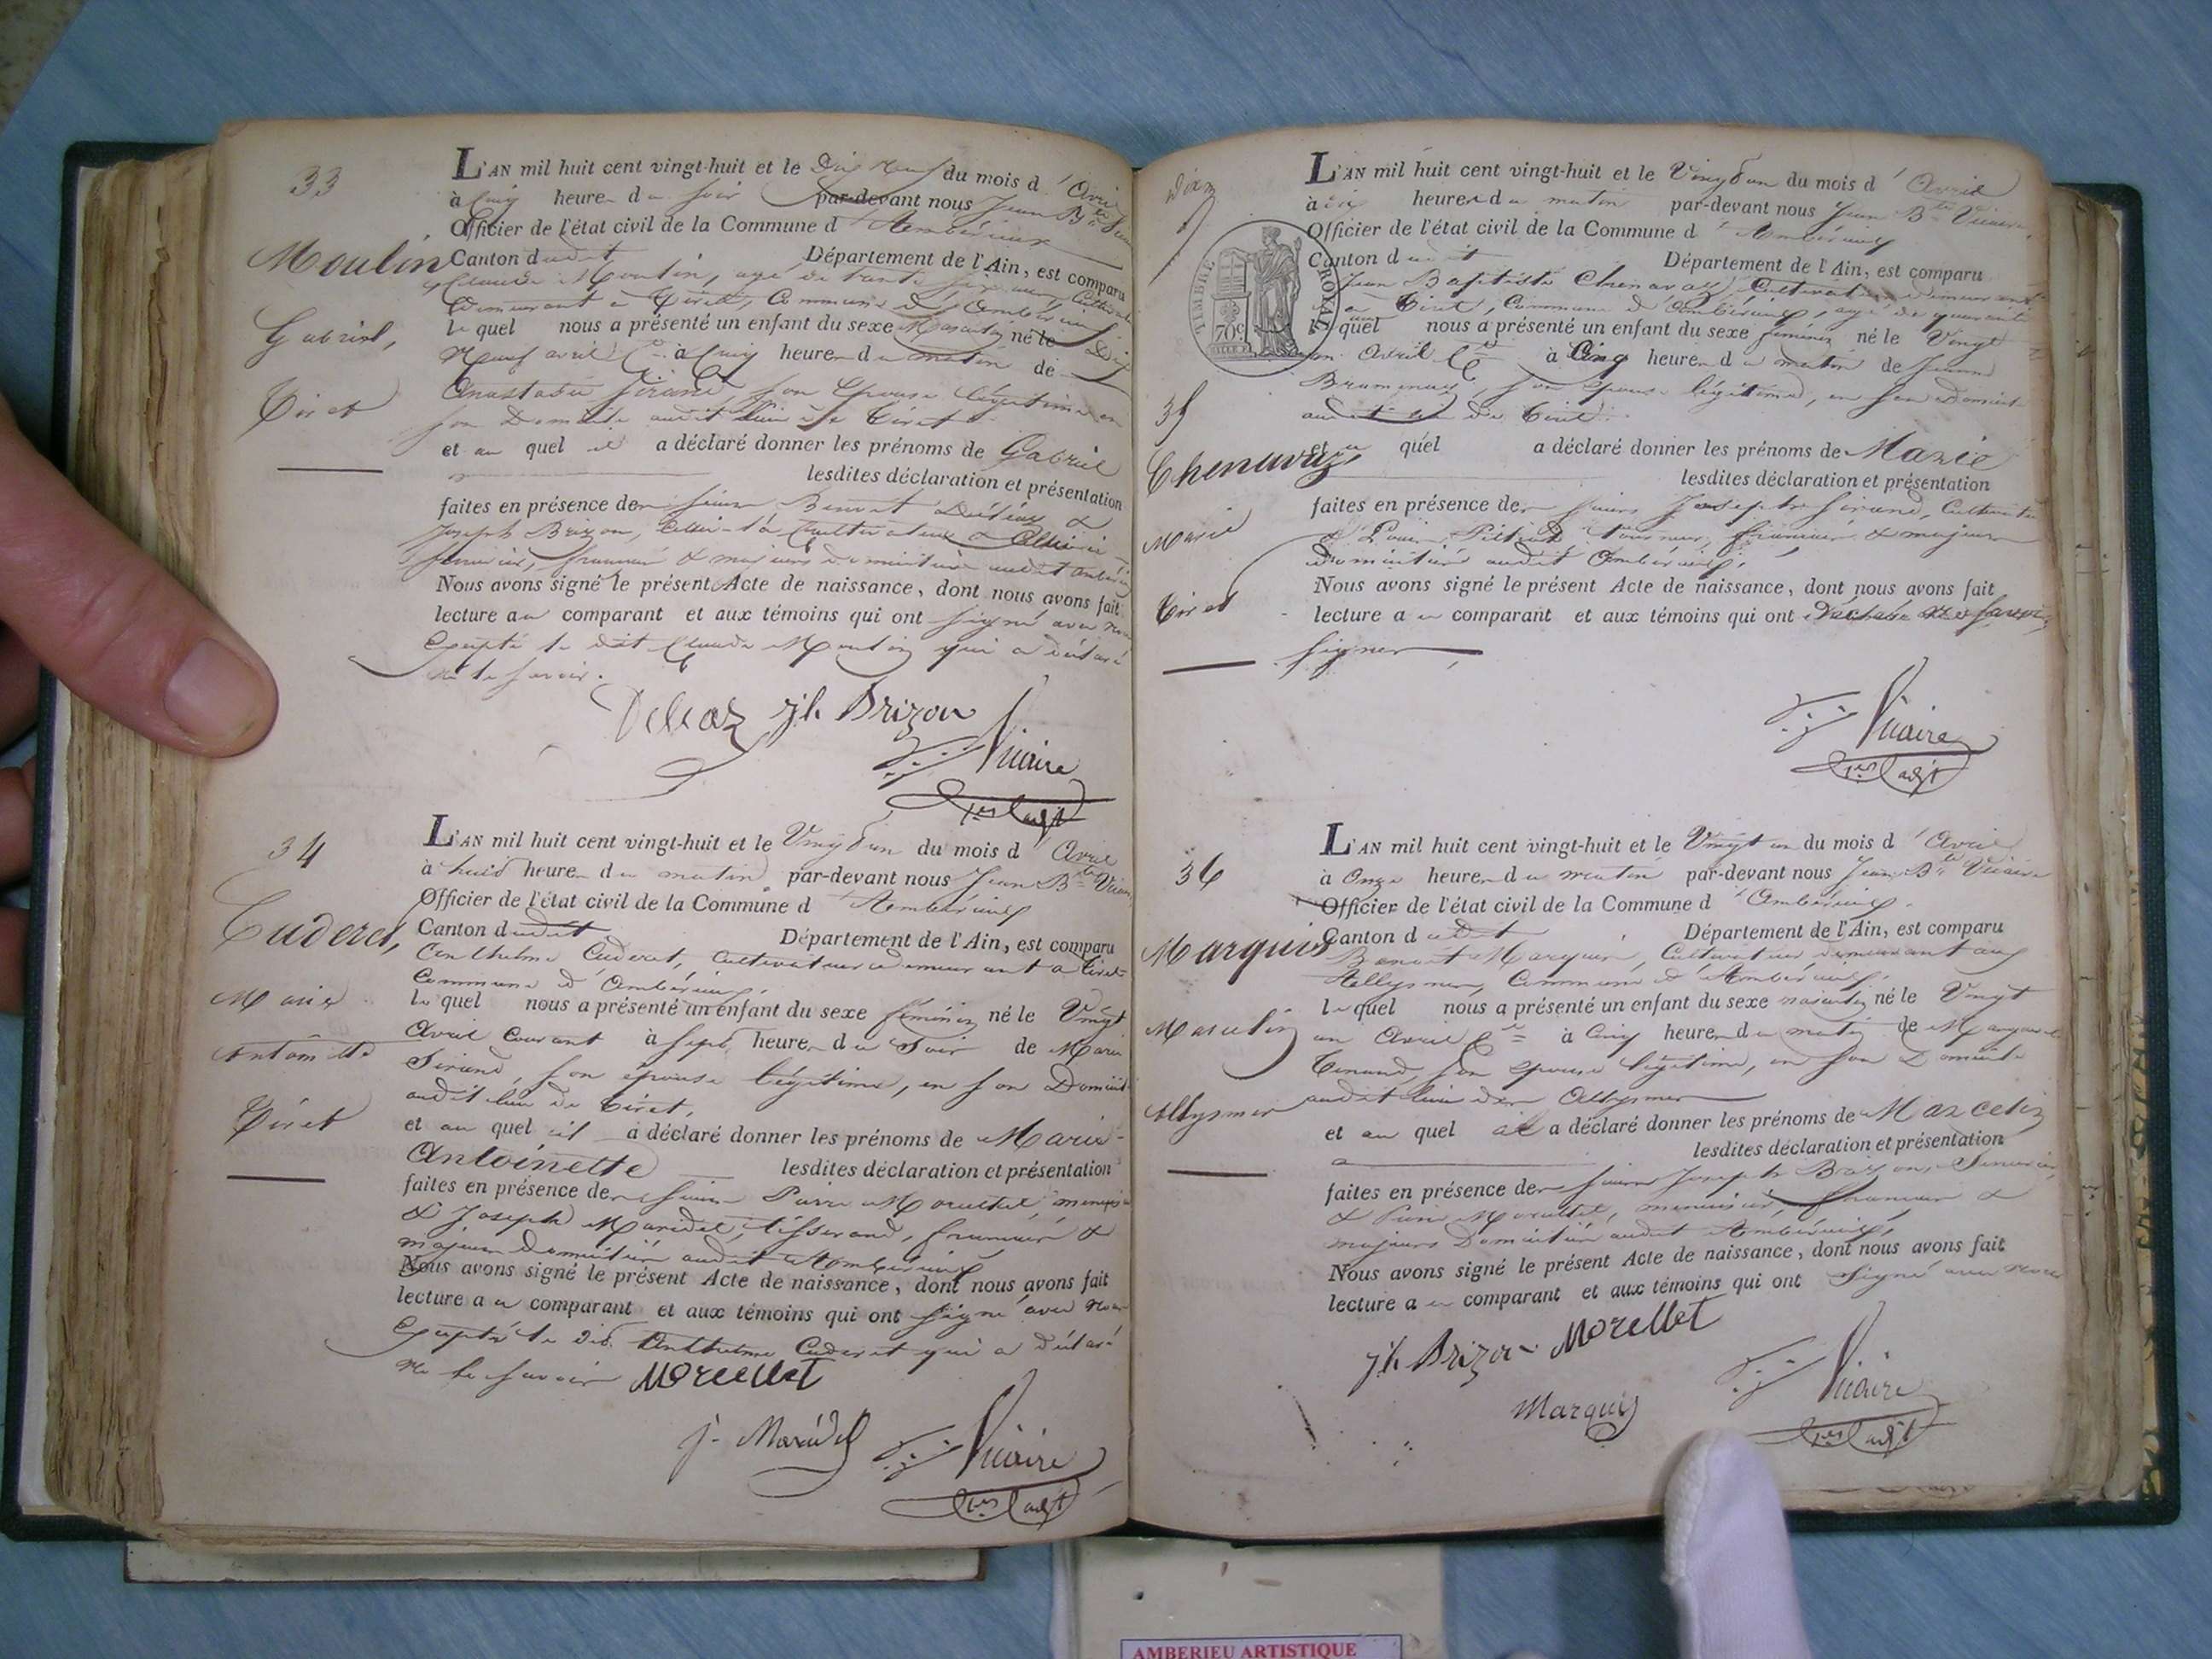 33
Moulin
Gabriel,
Tiret
L'AN mil huit cent vingt-huit et le Dix Neuf du mois d'Avril
à Cinq heure du soir par-devant nous Jean Bte
Officier de l'état civil de la Commune d'Ambérieux
Canton dudit Département de l'Ain, est comparu
Claude Moulin, agé de trente six ans, Cultivateur
Demeurant à Tiret, Commune d'Ambérieux
lequel nous a présenté un enfant du sexe Masculin né le Dix
Neuf avril Ct à Cinq heure du matin de
Anastasie Sirand, son Epouse légitime en
son Domicile audit lieu de Tiret
et auquel il a déclaré donner les prénoms de Gabriel
lesdites déclaration et présentation
faites en présence de Sieurs Benoit &
Joseph Brizon, Celui-là Cultivateur & Celui-ci
français & majeurs domiciliés audit Ambérieux
Nous avons signé le présent Acte de naissance, dont nous avons fait
lecture au comparant et aux témoins qui ont signé avec nous
Excepté le dit Claude Moulin qui a déclaré
ne le savoir.
jh Brizon
Vicaire
34
Cuderet,
Marie
Antoinette
Tiret
L'AN mil huit cent vingt-huit et le Vingt un du mois d'Avril
à huit heure du matin par-devant nous Jean Bte Vicaire
Officier de l'état civil de la Commune d'Ambérieux
Canton dudit Département de l'Ain, est comparu
Anthelme Cuderet, Cultivateur demeurant à Tiret
Commune d'Ambérieux,
lequel nous a présenté un enfant du sexe féminin né le Vingt
Avril Courant à sept heure du Soir de Marie
Sirand, son épouse légitime, en son Domicile
audit lieu de Tiret,
et auquel il a déclaré donner les prénoms de Marie-
Antoinette lesdites déclaration et présentation
faites en présence de Sieurs Pierre Morellet, menuisier
& Joseph Maridet, tisserand, français &
majeurs Domiciliés audit Ambérieux
Nous avons signé le présent Acte de naissance, dont nous avons fait
lecture au comparant et aux témoins qui ont signé avec nous
Excepté le dit Anthelme Cuderet qui a déclaré
ne le savoir Morellet
j. Maridet Vicaire
TIMBRE ROYAL
70c
35
Chenavaz,
Marie
Tiret
L'AN mil huit cent vingt-huit et le Vingt un du mois d'Avril
à dix heure du matin par-devant nous Jean Bte Vicaire
Officier de l'état civil de la Commune d'Ambérieux
Canton dudit Département de l'Ain, est comparu
Jean Baptiste Chenavaz, Cultivateur demeurant
à Tiret, Commune d'Ambérieux, agé de quarante
lequel nous a présenté un enfant du sexe féminin né le Vingt
un Avril Ct à Cinq heure du matin de Jeanne
son épouse légitime, en son Domicile
audit lieu de Tiret.
et auquel a déclaré donner les prénoms de Marie
lesdites déclaration et présentation
faites en présence de Sieurs Joseph Sirand, Cultivateur
& Louis tourneur, français & majeurs
Domiciliés audit Ambérieux,
Nous avons signé le présent Acte de naissance, dont nous avons fait
lecture au comparant et aux témoins qui ont déclaré ne savoir
signer
Vicaire
36
Marquis
Marcelin
Allysmer
L'AN mil huit cent vingt-huit et le Vingt un du mois d'Avril
à Onze heure du matin par-devant nous Jean Bte Vicaire
Officier de l'état civil de la Commune d'Ambérieux
Canton dudit Département de l'Ain, est comparu
Benoit Marquis, Cultivateur demeurant aux
Allysmer, Commune d'Ambérieux,
lequel nous a présenté un enfant du sexe masculin né le Vingt
un Avril Ct à Cinq heure du matin de
Tenand, son épouse légitime, en son Domicile
audit lieu des Allysmer
et auquel il a déclaré donner les prénoms de Marcelin
lesdites déclaration et présentation
faites en présence de Sieurs Joseph Brizon,
& Pierre Morellet, menuisier, français &
majeurs Domiciliés audit Ambérieux,
Nous avons signé le présent Acte de naissance, dont nous avons fait
lecture au comparant et aux témoins qui ont signé avec nous
jh Brizon Morellet
Marquis Vicaire
AMBERIEU ARTISTIQUE